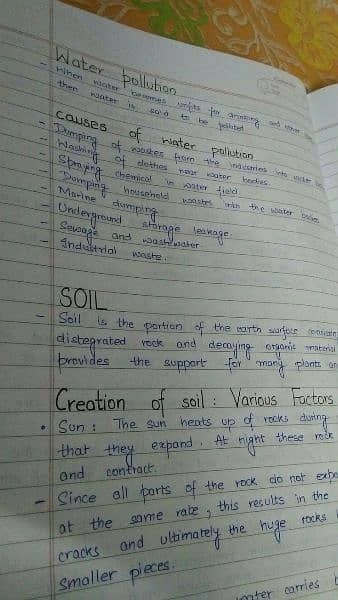 Water pollution
- When water becomes unfits for drinking and other
then water is said to be polluted
Causes of water pollution
- Dumping of wastes from the industries into water
- Washing of clothes near water bodies
- Spraying chemical in water field
- Dumping household wastes into the water bodies
- Marine dumping
- Underground storage leakage
- Sewage and wastewater
- Industrial waste.
SOIL
- Soil is the portion of the earth surface
distegrated rock and decaying organic material
provides the support for many plants
Creation of soil : Various Factors
• Sun : The sun heats up of rocks during
that they expand. At night these rock
and contract.
- Since all parts of the rock do not
at the same rate, this results in the
cracks and ultimately the huge rocks
smaller pieces.
water carries